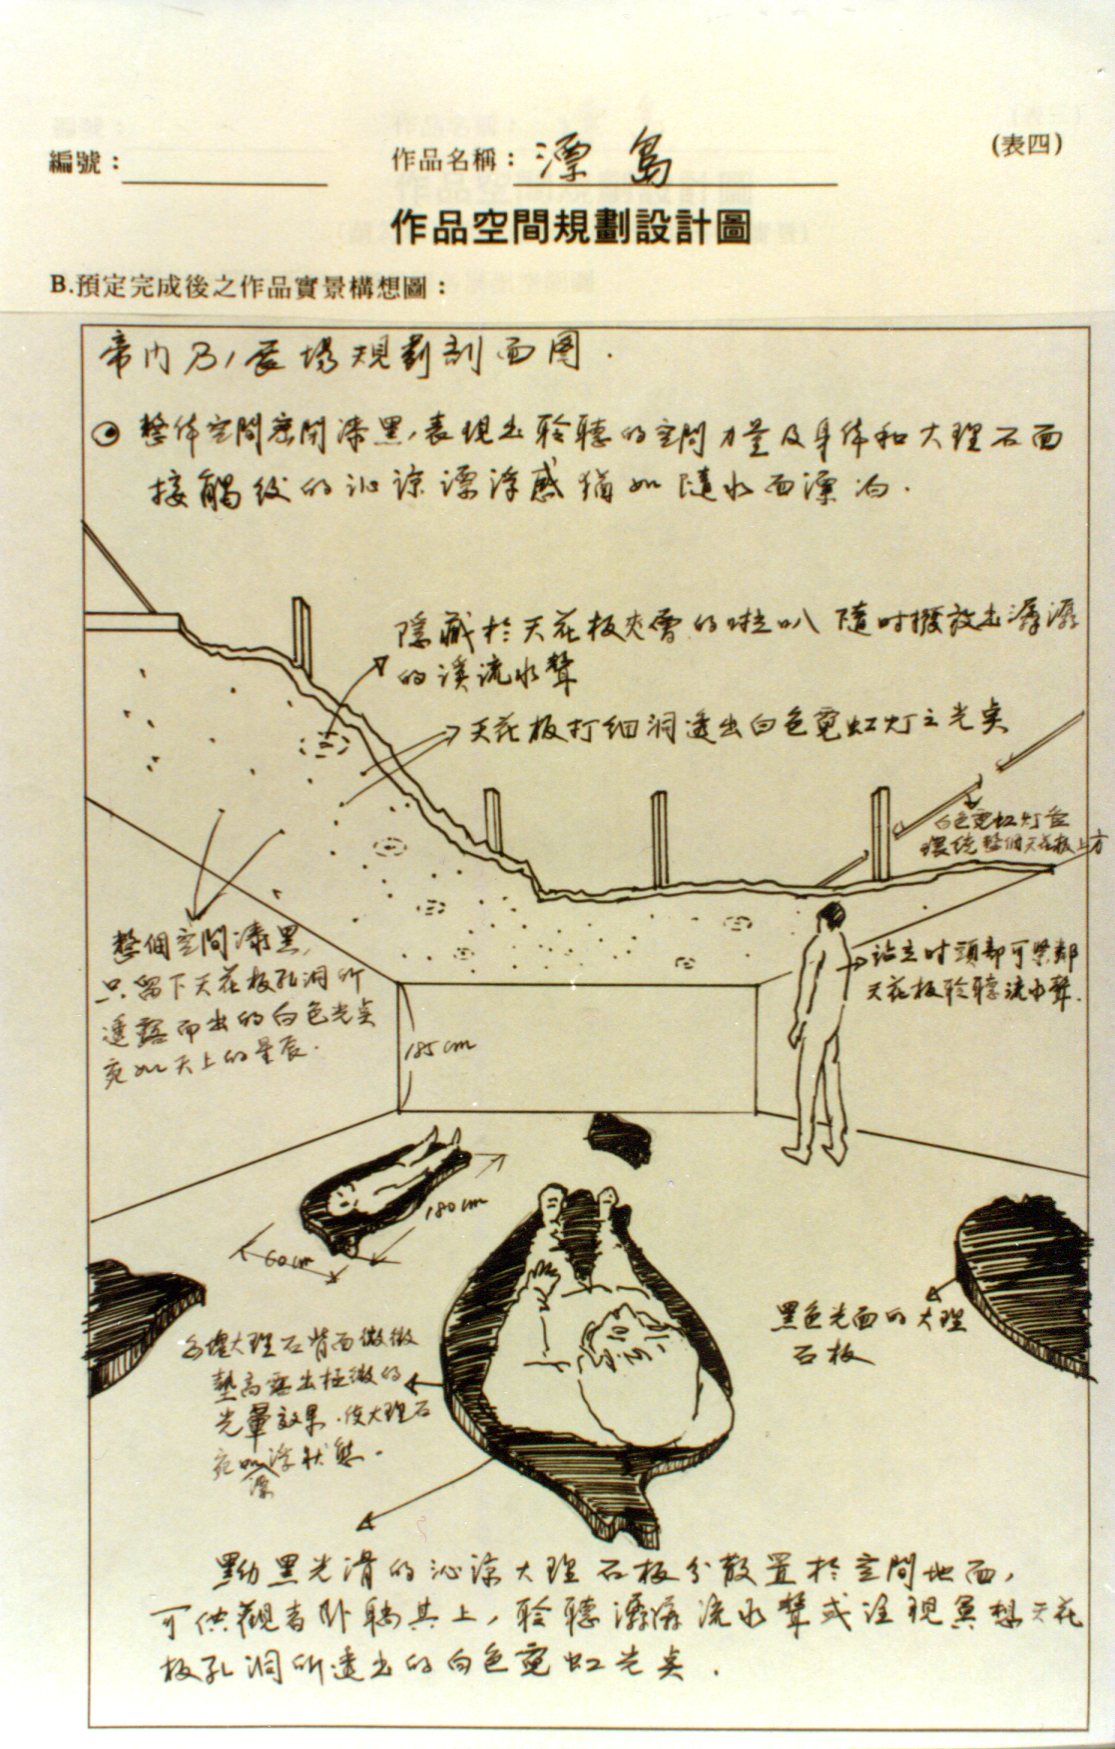 (表四)
編號：
作品名稱：漂島
作品空間規劃設計圖
B.預定完成後之作品實景構想圖：
帝門乃展場規劃剖面图.
整体空間密閉漆黑,表現出聆聽的空間力量及身体和大理石面
接觸後的沁涼漂浮感猶如隨水而漂泊.
隱藏於天花板夾層的喇叭隨時撥放出潺潺
的溪流水聲
天花板打細洞透出白色霓虹灯之光点
白色霓虹灯管
環繞整個天花板上方
整個空間漆黑,
只留下天花板孔洞所
透露而出的白色光点
宛如天上的星辰.
站立时頭部可緊鄰
天花板聆聽流水聲.
185cm
180cm
60cm
黑色光面的大理
石板
每塊大理石背面微微
墊高露出極微的
光暈效果.使大理石
宛如漂浮狀態.
黝黑光滑的沁涼大理石板分散置於空間地面,
可供觀者卧躺其上,聆聽潺潺流水聲或注視冥想天花
板孔洞所透出的白色霓虹光点.